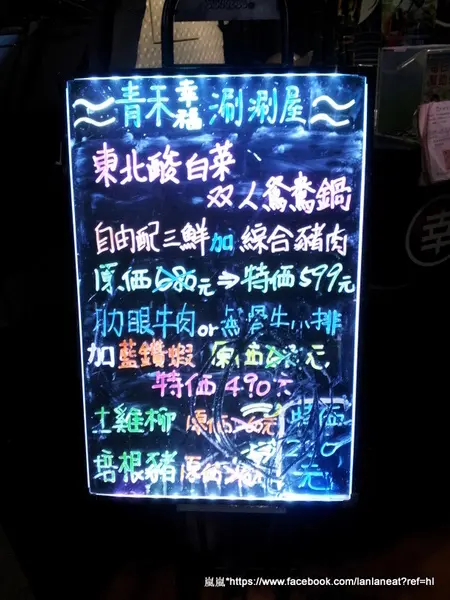 青禾幸福涮涮屋
東北酸白菜
双人鴛鴦鍋
自由配三鮮加綜合豬肉
原価680元⇒特価599元
肋眼牛肉or無骨牛小排
加藍鑽蝦 原価 元,
特価490元
土雞柳 原価 元 特価
培根豬 原価 元
幸
嵐嵐*https://www.facebook.com/lanlaneat?ref=hl